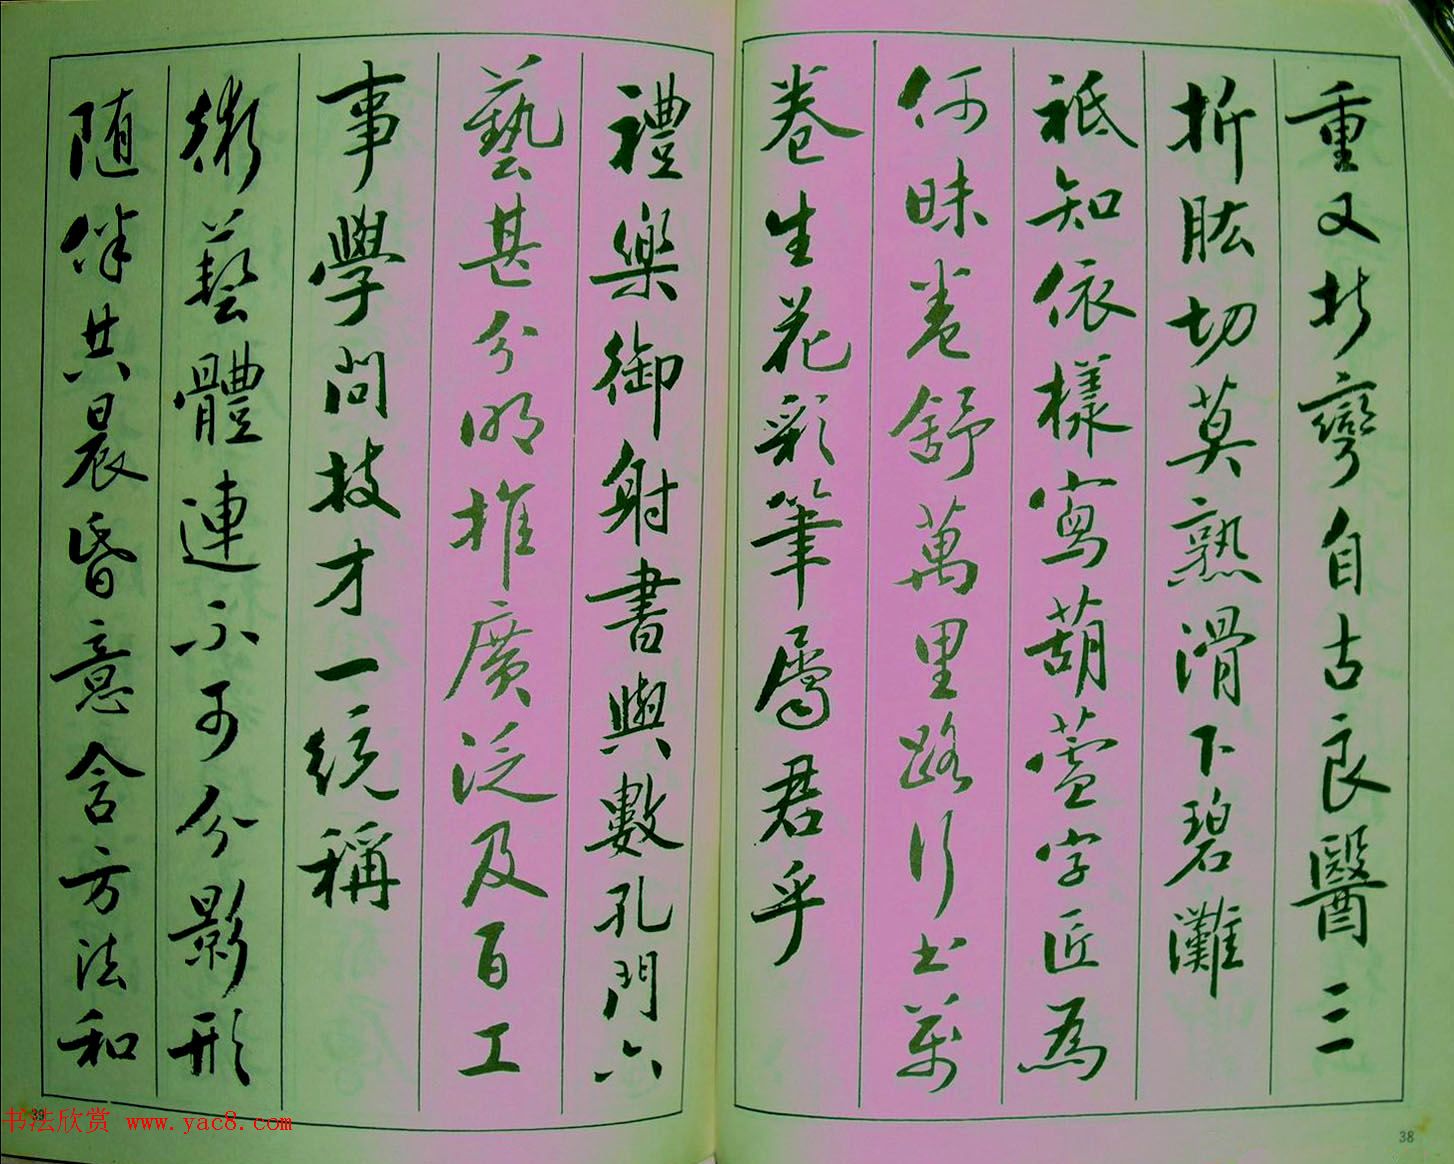 重又折彎自古良醫三
折肱切莫熟滑下碧灘
祗知依樣寫葫蘆字匠為
何昧卷舒萬里路行土萬
卷生花彩筆屬君乎
禮樂御射書與數孔門六
藝甚分明推廣泛及百工
事學問技才一統稱
術藝體連不可分影形
隨伴共晨昏意含方法和
38
39
书法欣赏 www.yac8.com